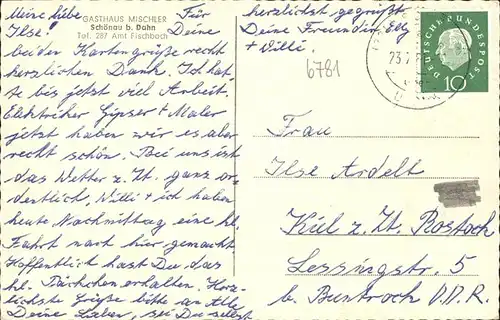 Meine liebe
GASTHAUS MISCHLER
Schönau b. Dahn
Tel. 287 Amt Fischbach
Ilse. Für Deine
beiden Kartengrüße recht
herzlichen Dank. Ich hat-
te bis jetzt viel Arbeit.
Elektriker Gipser + Maler
jetzt haben wir es aber
recht schön. Bei uns ist
das Wetter z. Zt. ganz or-
dentlich, Willi + ich haben
heute Nachmittag eine kl.
Fahrt nach hier gemacht.
Hoffentlich hast Du das
kl. Päckchen erhalten. Herz-
lichste Grüße bitte an Alle
Deine Lieben, sei Du selbst
herzlichst gegrüßt
Deine Freundin Elly
+ Willi.
6781
DEUTSCHE BUNDESPOST
10
Frau
Ilse Ardelt
Kiel z. Zt. Rostock
Lessingstr. 5
b. D.D.R.